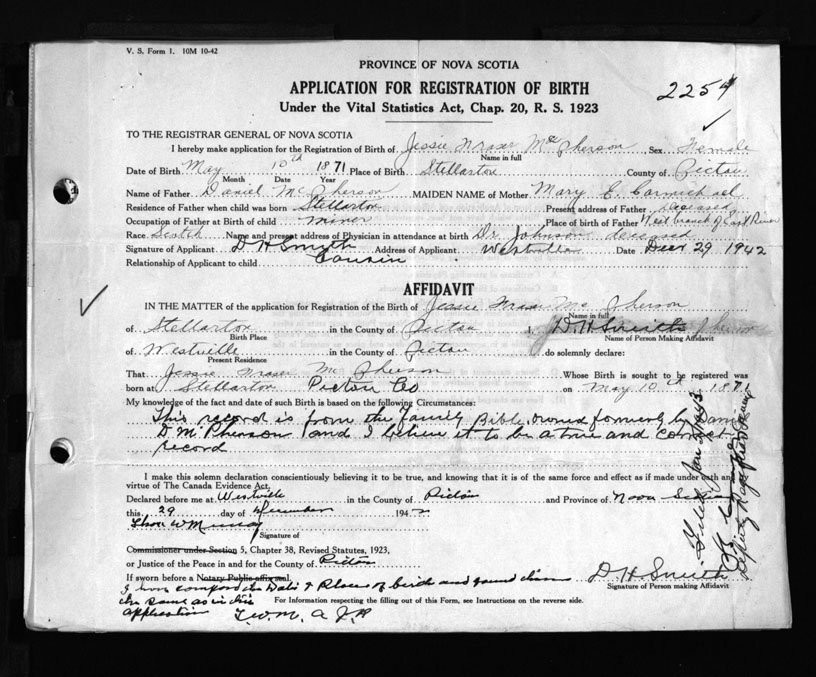 V. S. Form 1. 10M 10-42
PROVINCE OF NOVA SCOTIA
APPLICATION FOR REGISTRATION OF BIRTH
Under the Vital Statistics Act, Chap. 20, R. S. 1923
2254
TO THE REGISTRAR GENERAL OF NOVA SCOTIA
I hereby make application for the Registration of Birth of Jessie Fraser McPherson Sex Female
Name in full
Date of Birth May 10th 1871 Place of Birth Stellarton County of Pictou
Month Date Year
Name of Father Daniel McPherson MAIDEN NAME of Mother Mary E. Carmichael
Residence of Father when child was born Stellarton Present address of Father deceased
Occupation of Father at Birth of child miner Place of birth of Father West branch of East River
Race Scotch Name and present address of Physician in attendance at birth Dr. Johnson deceased
Signature of Applicant D H Smith Address of Applicant Westville Date Decr 29 1942
Relationship of Applicant to child Cousin
AFFIDAVIT
IN THE MATTER of the application for Registration of the Birth of Jessie Fraser McPherson
Name in full
of Stellarton in the County of Pictou I, D. H Smith
Birth Place Name of Person Making Affidavit
of Westville in the County of Pictou do solemnly declare:
Present Residence
That Jessie Fraser McPherson Whose Birth is sought to be registered was
born at Stellarton Pictou Co on May 10th 1871
My knowledge of the fact and date of such Birth is based on the following Circumstances:
This record is from the family Bible owned formerly by
D. McPherson and I believe it to be a true and correct
record
I make this solemn declaration conscientiously believing it to be true, and knowing that it is of the same force and effect as if made under oath and
virtue of The Canada Evidence Act.
Declared before me at Westville in the County of Pictou and Province of Nova Scotia
this 29 day of December 1942
Thos W Murray
Signature of
Commissioner under Section 5, Chapter 38, Revised Statutes, 1923,
or Justice of the Peace in and for the County of Pictou
If sworn before a Notary Public affix seal.
D. H. Smith
Signature of Person making Affidavit
I have compared the Date & Place of birth and found them
the same as in this
application T.W.M. a J P
For Information respecting the filling out of this Form, see Instructions on the reverse side.
Filed Jan 2/1943
Deputy Registrar